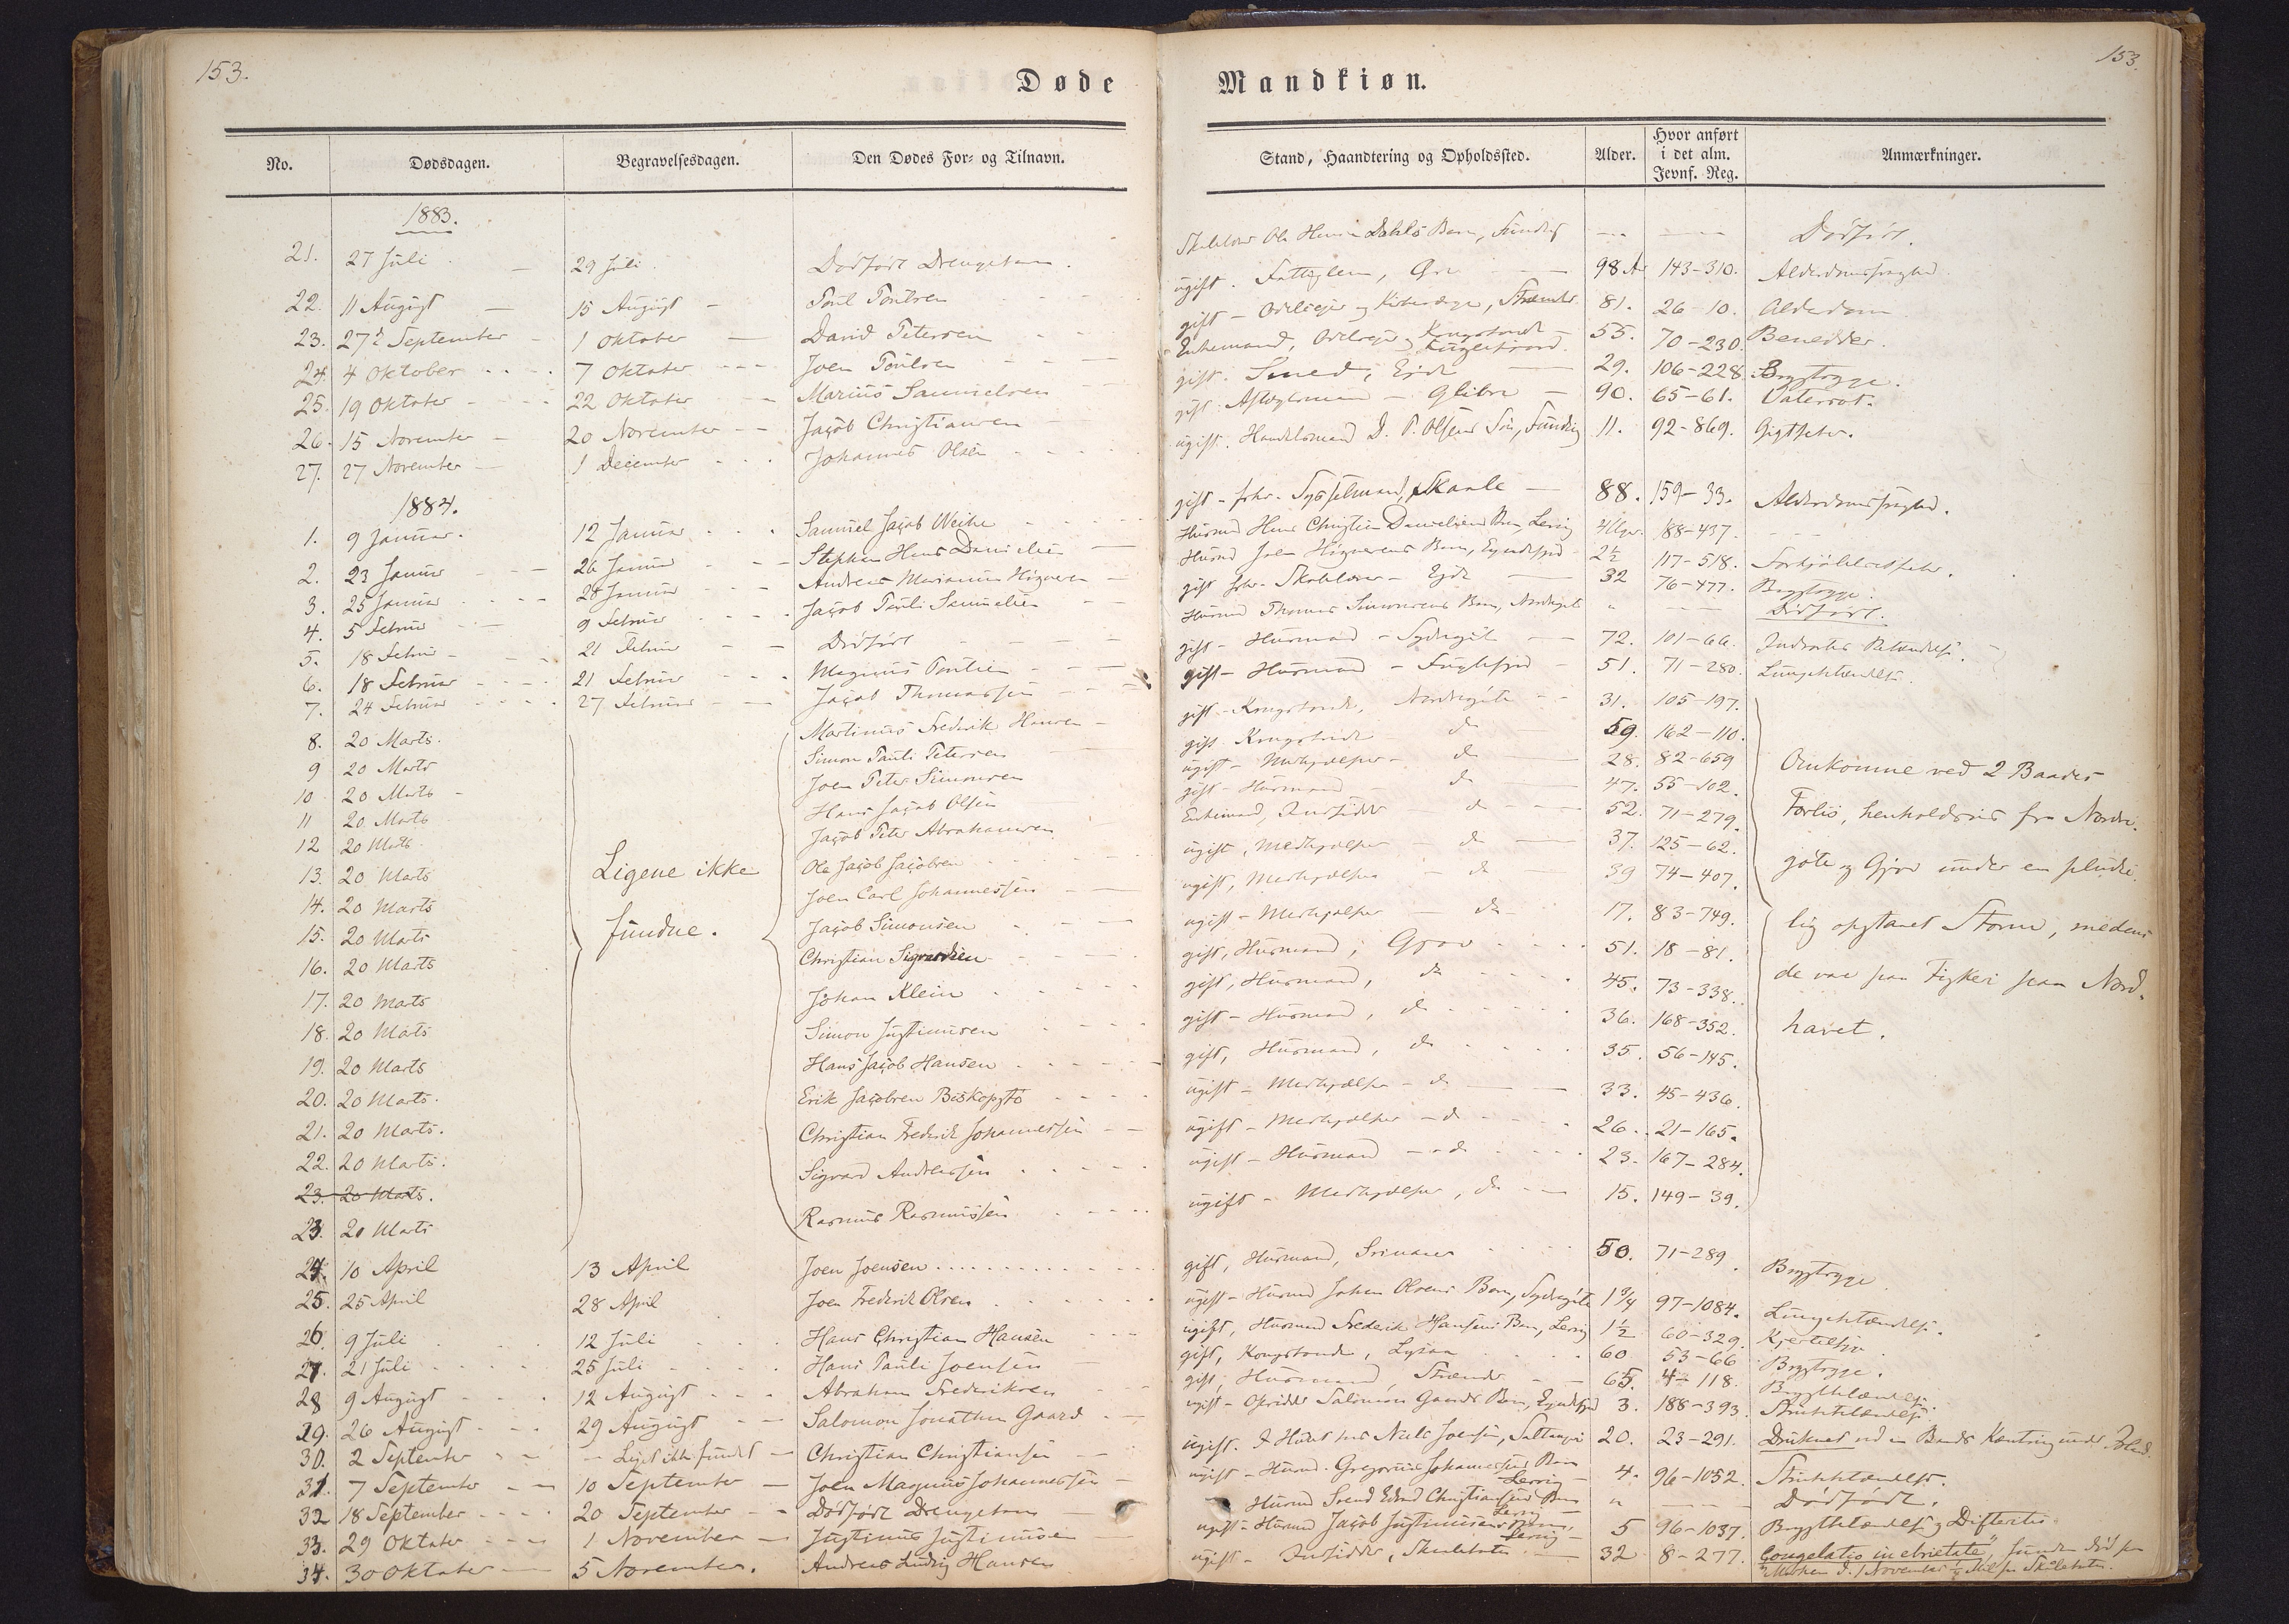 153.
153.
Døde
Mandkiøn.
No.
Dødsdagen.
Begravelsesdagen.
Den Dødes For- og Tilnavn.
Stand, Haandtering og Opholdssted.
Alder.
Hvor anført i det alm. Jevnf. Reg.
Anmærkninger.
1883.
21. 27 Juli 29 Juli Dødfødt Drengebarn. Skolelærer Ole Dahls Barn, Dødfødt.
22. 11 August 15 August Poul Poulsen ugift. Fattiglem, 98 Aar 143-310. Alderdomssvaghed
23. 27de September 1 Oktober David Petersen gift - Odelsejer og 81. 26-10. Alderdom
24. 4 Oktober 7 Oktober Joen Poulsen Enkemand, Odelsejer og Kongsbonde Fuglefjord. 55. 70-230. Benedder.
25. 19 Oktober 22 Oktober Marius Samuelsen gift. Smed, Ejde 29. 106-228. Brystsyge.
26. 15 November 20 November Jacob Christiansen gift. - Glibre 90. 65-61. Vatersot.
27. 27 November 1 December Johannes Olsen ugift. Handelsmand D. P. Olsens Søn, 11. 92-869. Gigtfeber.
1884.
1. 9 Januar. 12 Januar Samuel Jacob Weihe gift - forhv. Sysselmand, Skaale 88. 159-33. Alderdomssvaghed.
2. 23 Januar 26 Januar Stephan Hans Danielsen Husmd Hans Christian Danielsens Barn, Lervig 188-437.
3. 25 Januar 28 Januar Andreas Marianus Husmd Joen Barn, 2½ 117-518. Forkjølelsesfeber.
4. 5 Februar 9 Februar Jacob Pauli Samuelsen gift - Ejde 32 76-477. Brystsyge.
5. 18 Februar 21 Februar Dødfødt Husmd Thomas Simonsens Barn, Nordregøte " Dødfødt.
6. 18 Februar 21 Februar Magnus Poulsen gift - Husmand - Sydregøte 72. 101-66. Indvortes
7. 24 Februar 27 Februar Jacob Thomassen gift - Husmand - Fuglefjord 51. 71-280. Lungebetændelse.
8. 20 Marts. Martinus Frederik Hansen gift - Kongsbonde, Nordregøte 31. 105-197.
9 20 Marts Simon Pauli Petersen gift Kongsbonde do 59. 162-110.
10 20 Marts Joen Peter Simonsen ugift - Medhjælper - do 28. 82-659
11 20 Marts Hans Jacob Olsen gift - Husmand do 47. 55-102.
12 20 Marts. Jacob Peter Abrahamsen Enkemand, Indsidder do 52. 71-279.
13. 20 Marts Ole Jacob Jacobsen ugift, Medhjælper - do 37. 125-62.
14. 20 Marts Joen Carl Johannessen ugift, Medhjælper - do 39 74-407.
15. 20 Marts Jacob Simonsen ugift - Medhjælper - do 17. 83-749.
16. 20 Marts Christian gift, Husmand, Gjov 51. 18-81.
17. 20 Marts Johan Klein gift, Husmand, do 45. 73-338.
18. 20 Marts Simon Justinusen gift - Husmand, do 36. 168-352.
19. 20 Marts Hans Jacob Hansen gift, Husmand, do 35. 56-145.
20. 20 Marts. Erik Jacobsen Biskopstø ugift - Medhjælper - do 33. 45-436.
21. 20 Marts. Christian Frederik Johannessen ugift - Medhjælper - do 26. 21-165.
22. 20 Marts. Sigvard Andreassen ugift - Husmand - do 23. 167-284.
23. 20 Marts.
23. 20 Marts Rasmus Rasmussen ugift - Medhjælper, do 15. 149-39.
Ligene ikke
fundne.
Omkomne ved 2 Baades
Forlis, henholdsvis fra Nordre-
gøte og Gjov under en pludse-
lig opstaaet Storm, medens
de var paa Fiskeri paa Nord-
havet.
24. 10 April 13 April Joen Joensen gift, Husmand, 50. 71-289. Brystsyge
25. 25 April 28 April Joen Frederik Olsen ugift - Husmd Johan Olsens Barn, Sydregøte 1¾ 97-1084. Lungebetændelse.
26. 9 Juli 12 Juli Hans Christian Hansen ugift, Husmd Frederik Hansens Barn, Lervig 1½ 60-329.
27. 21 Juli 25 Juli Hans Pauli Joensen gift, Kongsbonde, 60 53-66 Brystsyge.
28 9 August 12 August Abraham Frederiksen gift, Husmand, 65. 4-118.
29. 26 August 29 August Salomon Jonathan Gaard ugift - Salomon Gaards Barn, 3. 188-393. Strubebetændelse.
30. 2 September - Liget ikke fundet - Christian Christiansen ugift. I Huset hos Niels Joensen, 20. 23-291. Druknet ved en Baads Kæntring under
31. 7 September 10 September Joen Magnus Johannessen ugift - Husmd. Gregorius Johannessens Barn Lervig 4. 96-1052. Strubebetændelse.
32 18 September 20 September Dødfødt Drengebarn Husmd Christiansens Barn Lervig " Dødfødt.
33. 29 Oktober 1 November Justinus Justinusen ugift - Husmd Jacob Justinusens Barn, Lervig 5 96-1037. og Difteritis
34. 30 Oktober 5 November. Andreas Ludvig Hansen ugift - Indsidder, 32 8-277. "Congelatio in ebrietate" funden død paa
Marken d. 1 November